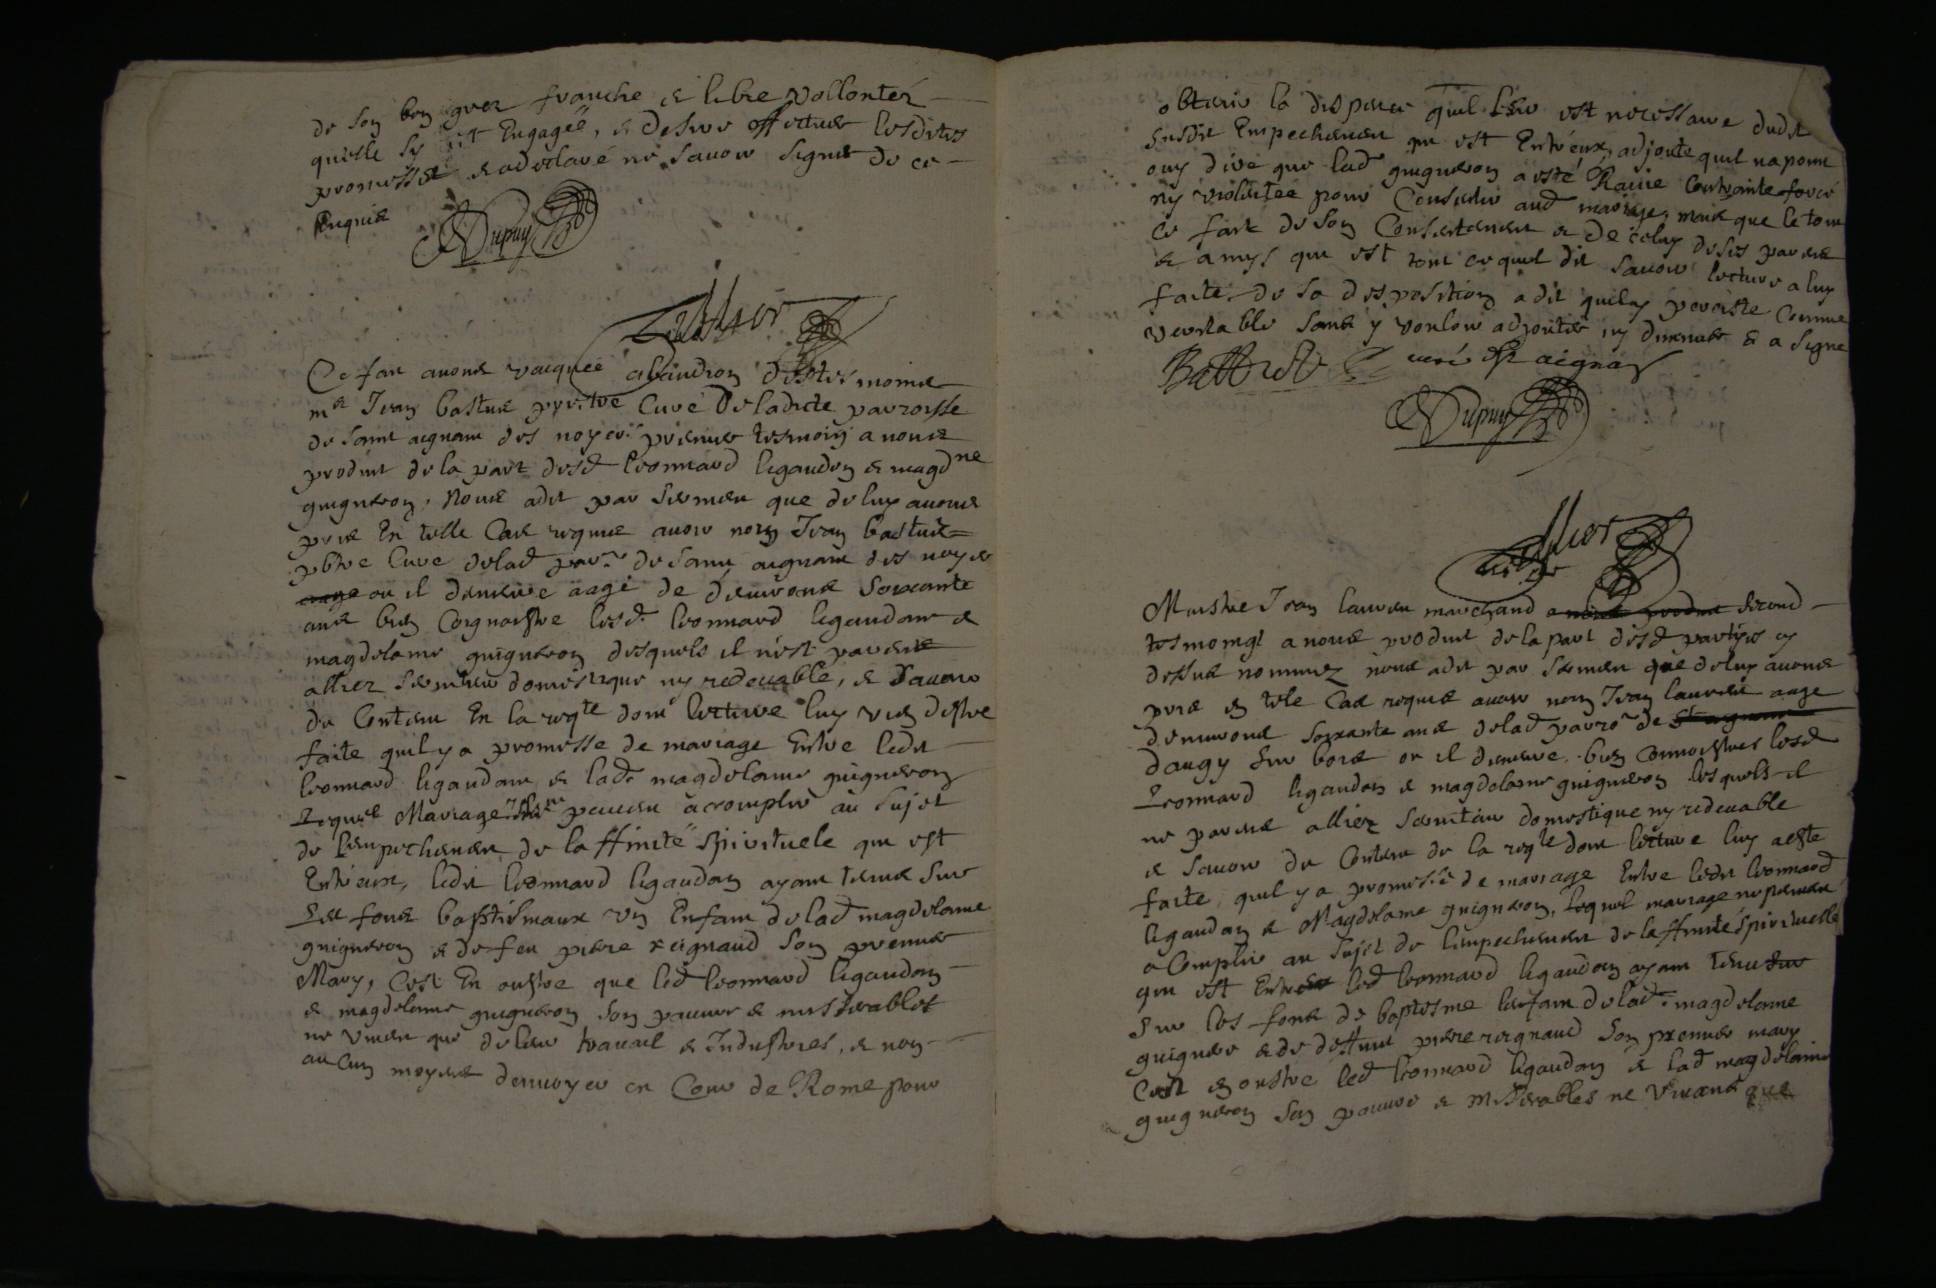 de son bon grez franche et libre vollonter
quelle sy est Engagée, et desire effectuer lesdites
promesses et a declaré ne savoir signer de ce
Requise
Dupuy
Ce fait avons vacquée alaudion des tesmoins
mr Jean bastide prestre Curé de ladicte parroisse
de saint aignant des noyer premier tesmoin a nous
produit de la part desd leonnard ligaudon et magdne
guigneron, Nous a dit par serment que de luy avons
pris En telle Cas requis avoir nom Jean bastide
pbtre Curé de lad parr de saint aignant des noyer
ou il demeure aagé de d'environs soixante
ans bien Cognoistre lesd. leonnard ligaudon et
magdelaine guigneron desquels il n'est parent
alliez serviteur domestique ny redevable, et d'avoir
du Contenu En la reqte dont lecture luy vien d'estre
faite quil y a promesse de mariage Entre ledit
leonnard ligaudon et lad. magdelaine guigneron
Lequel Mariage ne peuven acomplir au sujet
de l'empechement de laffinité spirituele qui est
Entreux, ledit leonnard ligaudon ayant tenus sur
Les fons baptismaux un Enfant de lad magdelaine
guigneron et de feu pierre reignaud son premier
Mary, Cest En oustre que led leonnard ligaudon
et magdelaine guigneron son pauvre et miserables
ne vivent que de leur travail et Industries, et non
aucun moyens denvoyer en Cour de Rome pour
obtenir la dispence quil leur est necessaire dudit
susdit Empechement qui est Entréux, adjoute quil na point
ouy dire que lad guigneron a esté Ravie Contrainte forcé
ny violentee pour Consentir aud mariage, mais que le tout
ce fait de son Consentement et de celuy de ses parens
et amys qui est tout ce quil dit savoir lecture a luy
faite de sa desposition a dit quil y persiste Comme
veritable sans y vouloir adjouter ny diminuer et a signé
Bastide curé de st aignan
Dupuy
Maistre Jean laurent marchand a nous produit second
tesmoingt a nous produit de la part desd partyes cy
dessus nommez nous a dit par serment que de luy avons
pris en tele Cas requis avoir nom Jean laurent aage
d'environs soixante ans de lad parro de st aignant
daugy sur bois ou il demeure, bien connoistre lesd
Leonnard ligaudon et magdelaine guigneron lesquels il
ne parens alliez serviteur domestique ny redevable
et savoir du Contenu de la reqte dont lecture luy a este
faite, quil y a promesse de mariage Entre ledit leonnard
ligaudon et Magdelaine guigneron, lequel mariage ne peuvent
acomplir au sujet de lempechement de laffinité spirituelle
qui est Entreux led leonnard ligaudon ayant tenu sur
sur les fons de baptesme lenfant de lad. magdelaine
guigneron et de deffunt pierre regnaud son premier mary
Cest en oustre led leonnard ligaudon et lad magdelaine
guigneron son pauvre et miserables ne vivans que